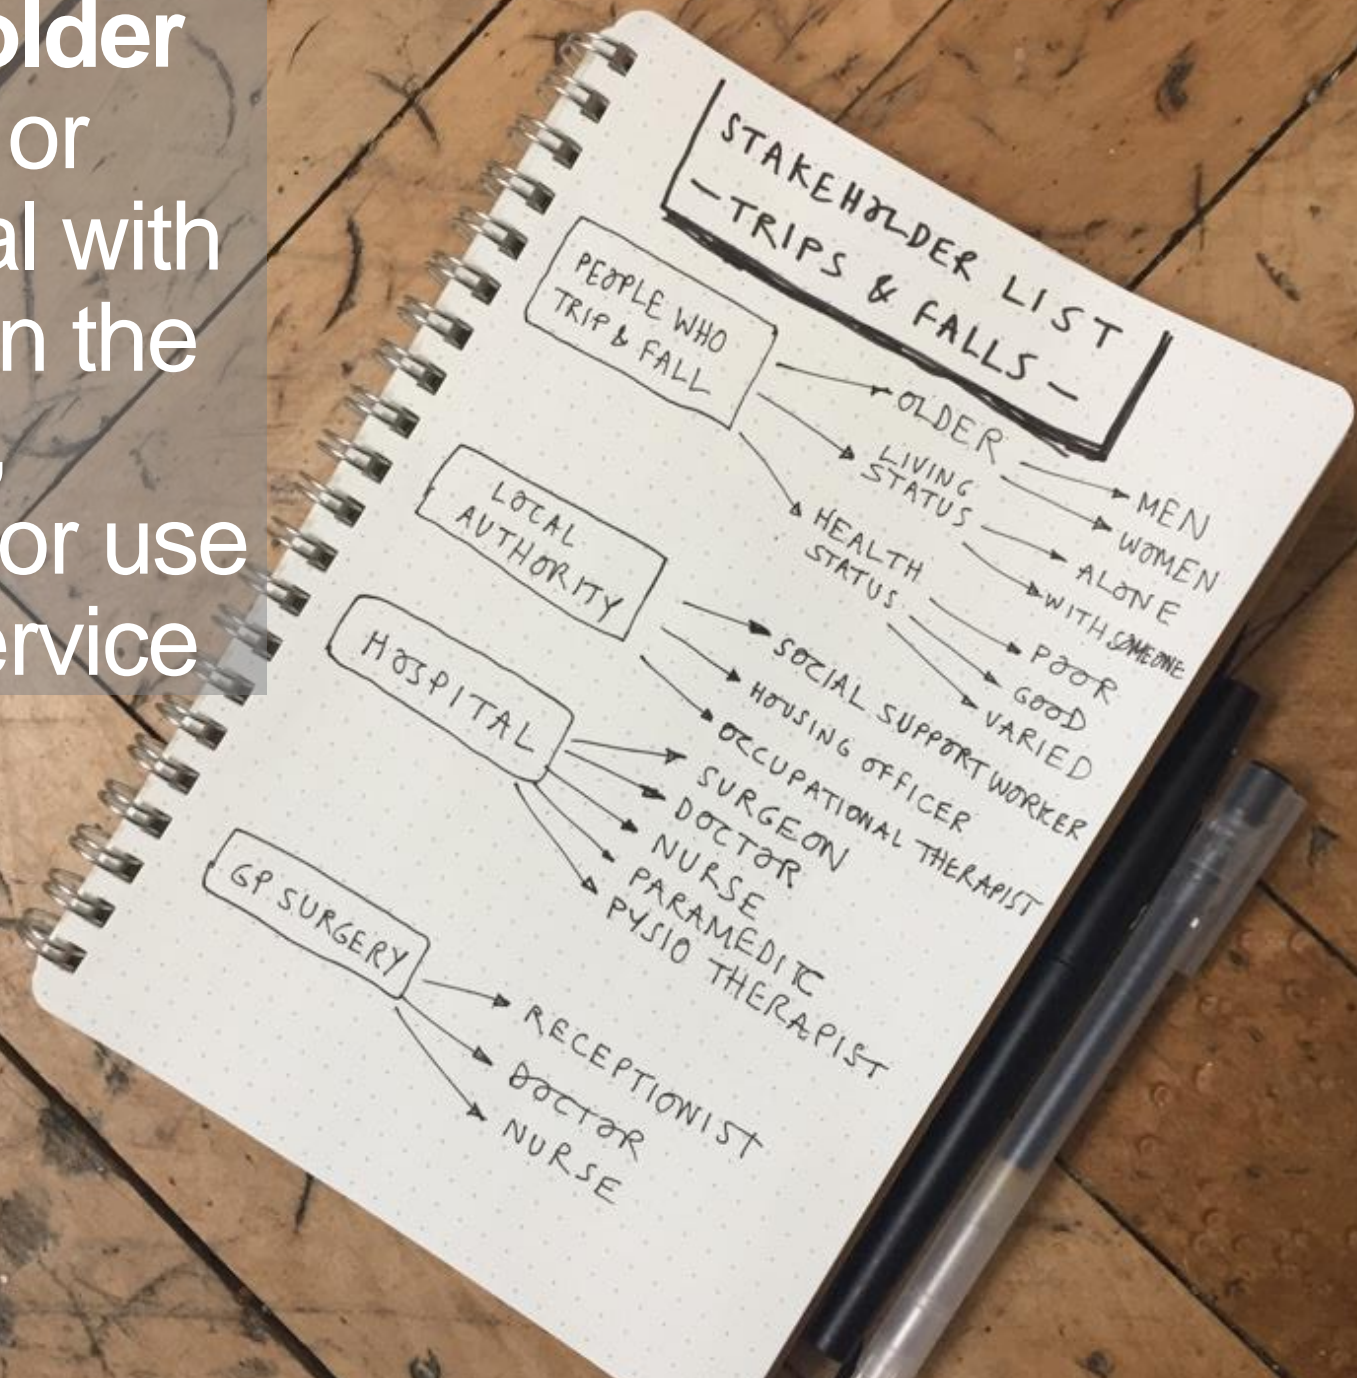 older
or
al with
n the
,
or use
ervice
STAKEHOLDER LIST
- TRIPS & FALLS -
PEOPLE WHO
TRIP & FALL
OLDER
MEN
WOMEN
LIVING
STATUS
ALONE
WITH SOMEONE
HEALTH
STATUS
POOR
GOOD
VARIED
LOCAL
AUTHORITY
SOCIAL SUPPORT WORKER
HOUSING OFFICER
OCCUPATIONAL THERAPIST
HOSPITAL
SURGEON
DOCTOR
NURSE
PARAMEDIC
PYSIO THERAPIST
GP SURGERY
RECEPTIONIST
DOCTOR
NURSE